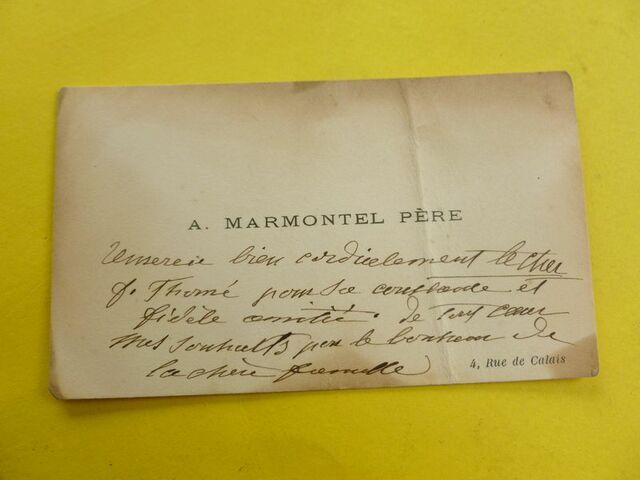 A. MARMONTEL PÈRE
remercie bien cordialement le cher
f. Thomé pour sa constante et
fidèle amitié. de tout cœur
mes souhaits pour le bonheur de
la chère famille
4, Rue de Calais